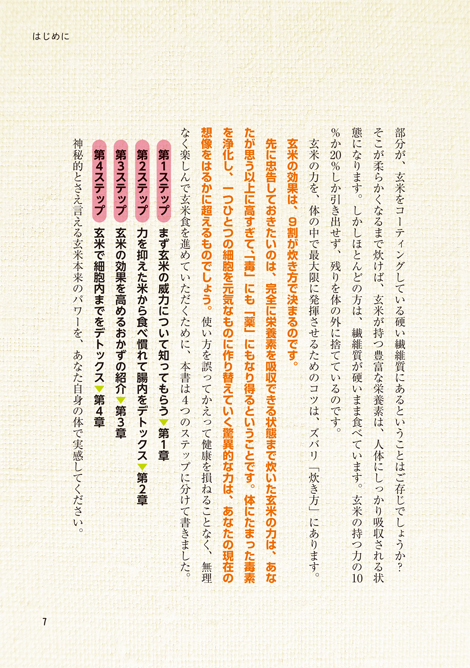 はじめに
部分が、玄米をコーティングしている硬い繊維質にあるということはご存じでしょうか?
そこが柔らかくなるまで炊けば、玄米が持つ豊富な栄養素は、人体にしっかり吸収される状
態になります。しかしほとんどの方は、繊維質が硬いまま食べています。玄米の持つ力の10
%か20%しか引き出せず、残りを体の外に捨てているのです。
玄米の力を、体の中で最大限に発揮させるためのコツは、ズバリ「炊き方」にあります。
玄米の効果は、9割が炊き方で決まるのです。
先に忠告しておきたいのは、完全に栄養素を吸収できる状態まで炊いた玄米の力は、あな
たが思う以上に高すぎて、「毒」にも「薬」にもなり得るということです。体にたまった毒素
を浄化し、一つひとつの細胞を元気なものに作り替えていく驚異的な力は、あなたの現在の
想像をはるかに超えるものでしょう。使い方を誤ってかえって健康を損ねることなく、無理
なく楽しんで玄米食を進めていただくために、本書は4つのステップに分けて書きました。
第1ステップ まず玄米の威力について知ってもらう▼第1章
第2ステップ 力を抑えた米から食べ慣れて腸内をデトックス▼第2章
第3ステップ 玄米の効果を高めるおかずの紹介▼第3章
第4ステップ 玄米で細胞内までをデトックス▼第4章
神秘的とさえ言える玄米本来のパワーを、あなた自身の体で実感してください。
7